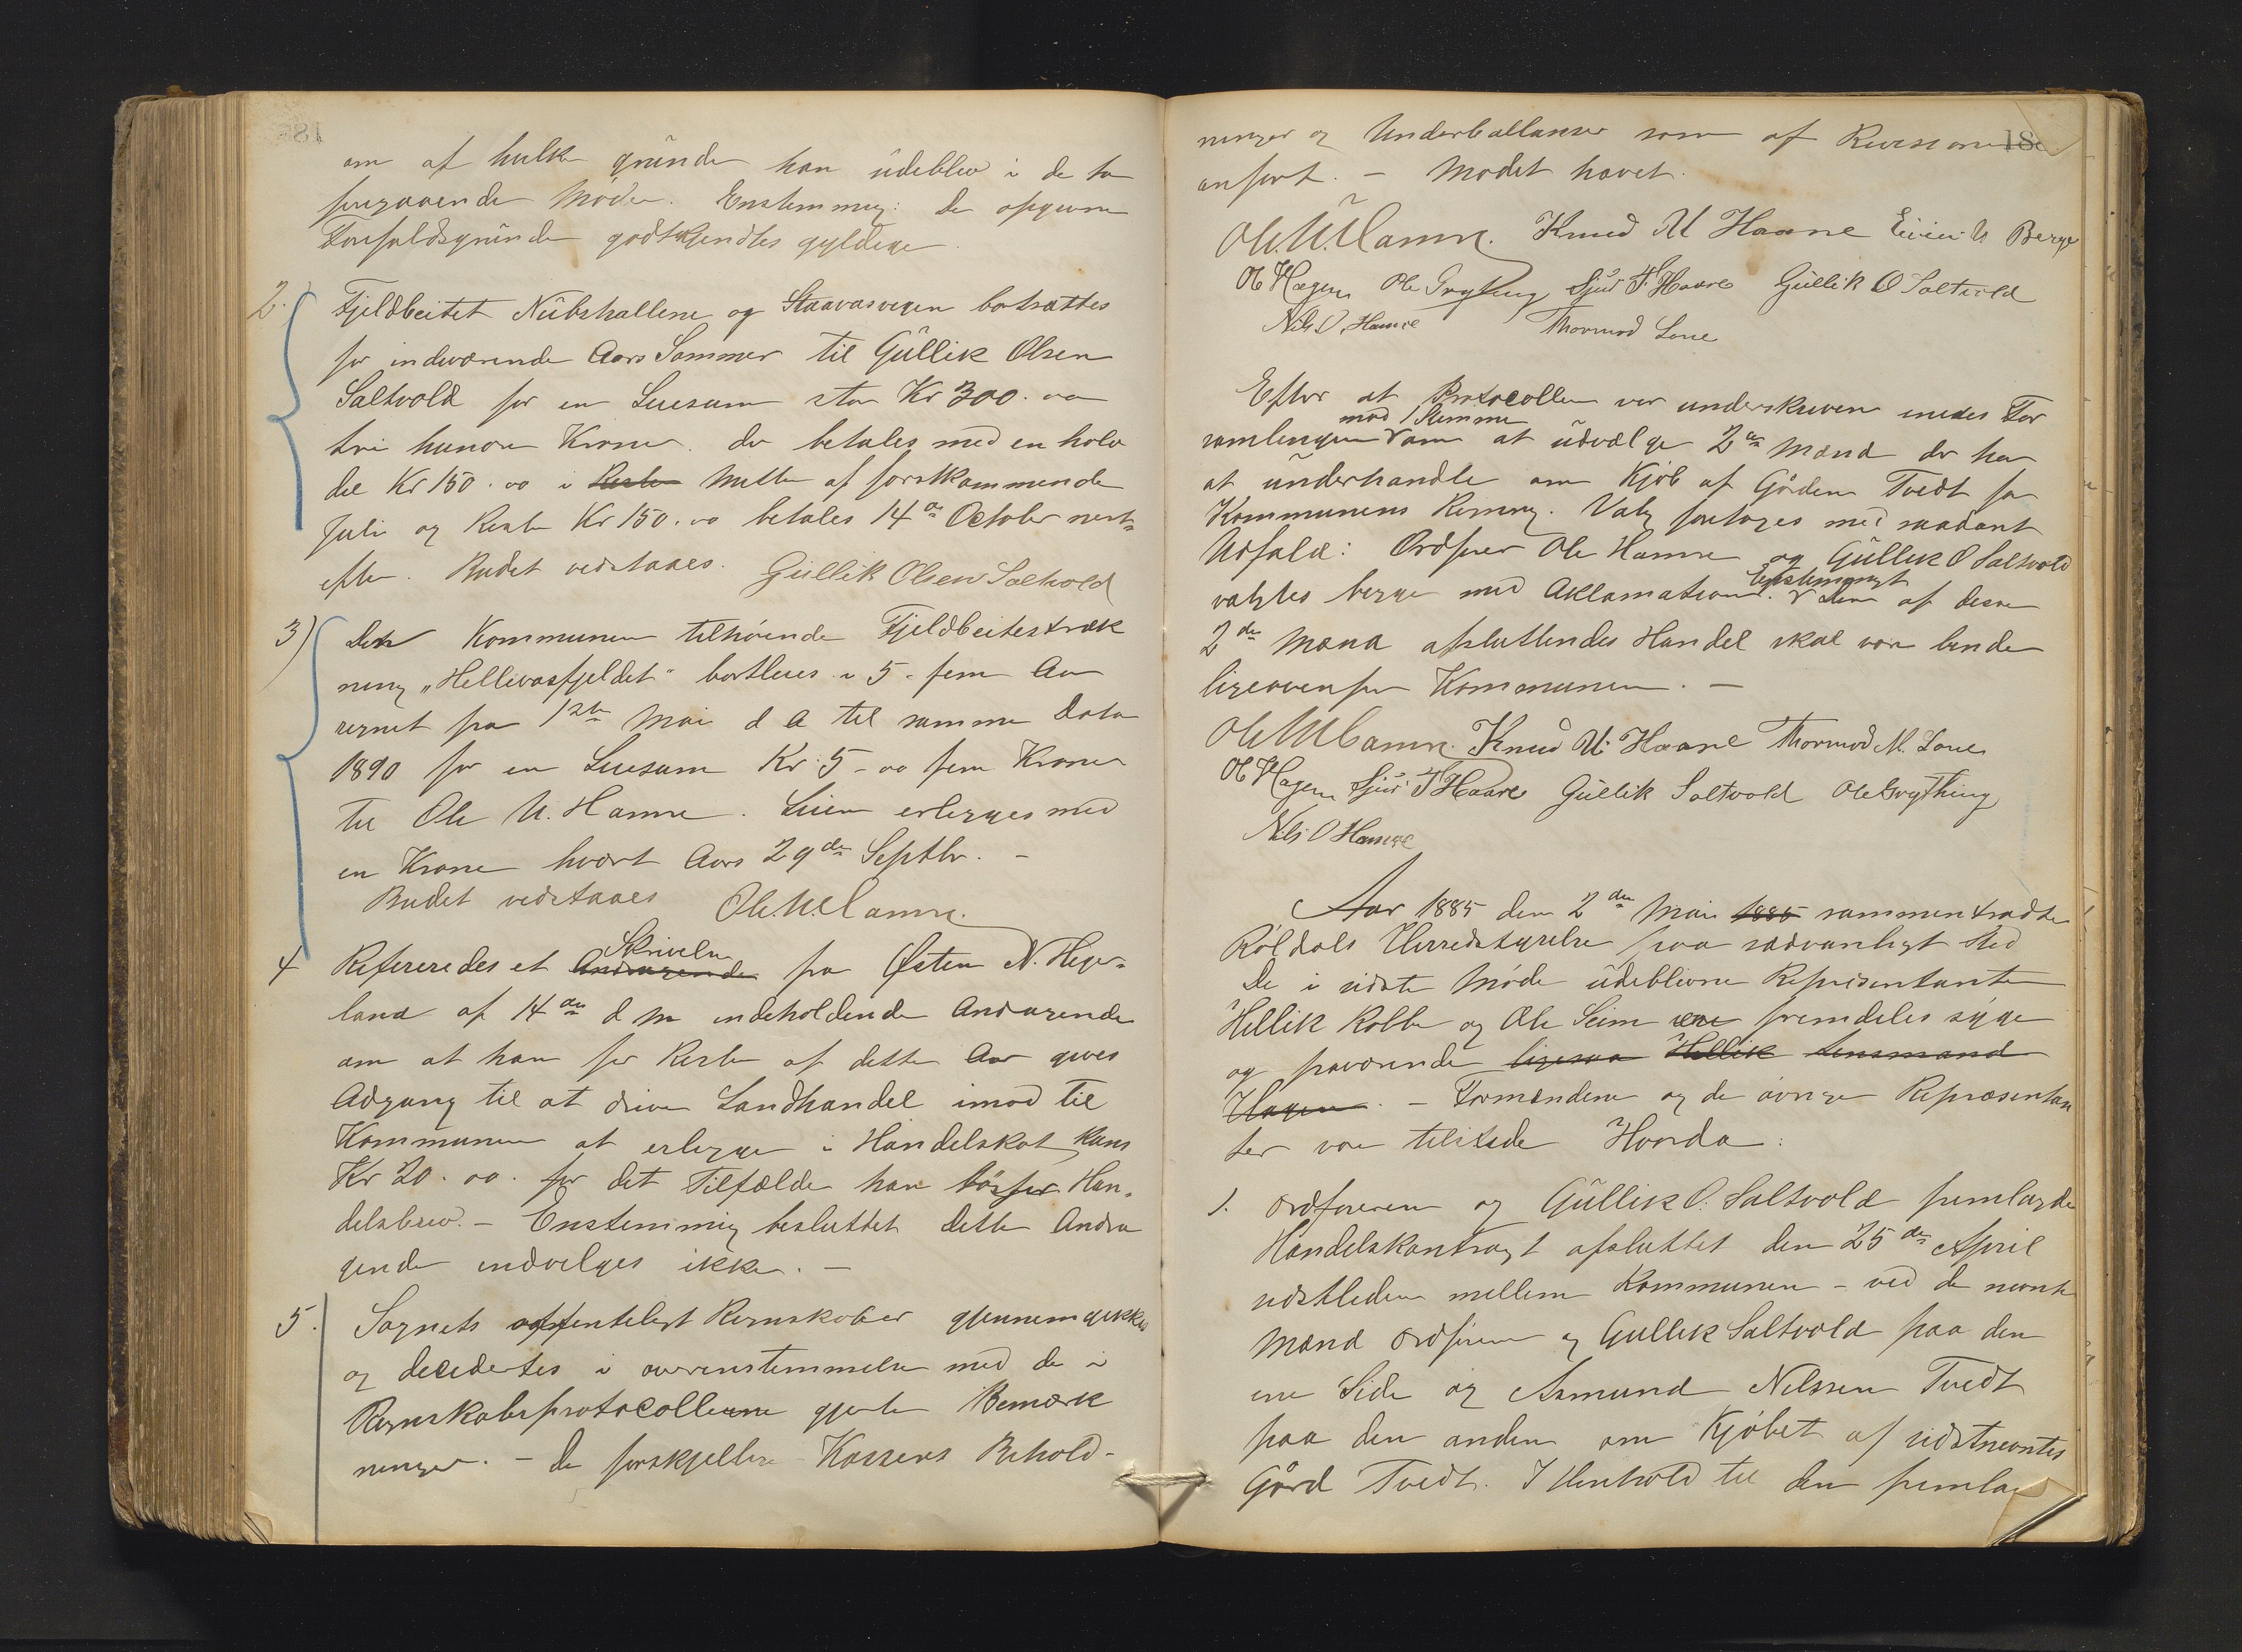 om af hvilke grunde han udeblev i de to
foregaaende Møder. Enstemmig: De opgivne
Forfaldsgrunde godtkjendtes gyldige.
2. Fjeldbeitet Nübshallene og Staavasvegen bortsættes
for indeværende Aars Sommer til Güllik Olsen
Saltvold for en Leiesum stor Kr 300.oo
tre hundre Kroner. der betales med en halv
del Kr 150.oo i Resten Midten af førstkommende
Juli og Resten Kr 150.oo betales 14de October næst
efter. Budet vedstaaes. Güllik Olsen Saltvold
3) Det Kommunen tilhørende Fjeldbeitestræk
ning „Hellevasfjeldet" bortleies i 5 - fem Aar
regnet fra 1ste Mai d A til samme Dato
1890 for en Leiesum Kr. 5 - oo fem Kroner
til Ole N. Hamre. Leien erlegges med
en Krone hvert Aars 29de Septbr. -
Budet vedstaaes Ole N. Hamre.
Skrivelse
4 Refereredes et Andragende fra Østen N. Heger-
land af 14de d M indeholdende Andragende
om at han for Resten af dette Aar gives
Adgang til at drive Landhandel imod til
Kommunen at erlegge i Handelskat kuns
Kr 20.oo. for det Tilfælde han løser Han-
delsbrev. - Enstemmig besluttet Dette Andra
gende indvilges ikke. -
5. Sognets offentligt Regnskaber gjennemgikkes
og decidertes i overenstemmelse med de i
Regnskabsprotocollerne gjorte Bemærk
ninger. - De forskjellige Kassers Behold-
18
ninger og Underballanser som af Revisionen
anført. - Mødet hævet.
Ole N. Hamre. Knud N Haare Eivind Berge
Ol Hagen Ole Grytting Sjur T. Haare Güllik O Saltvold
Nils O. Hamre Thormod Lone
Efter at Protocollen var underskreven enedes For
mod 1 Stemme
samlingen om at udvælge 2de Mænd der har
at underhandle om Kjøb af Gården Tvedt for
Kommunens Regning. Valg foretoges med saadant
Udfald: Ordfører Ole Hamre og Güllik O Saltvold
Enstemmigt
valgtes begge med Aklamation. Den af disse
2de Mænd afsluttendes Handel skal være binde
ligeovenfor Kommunen. -
Ole N Hamre. Knud N. Haare Thormod N. Lone
Ol Hagen Sjur T Haare Güllik Saltvold Ole Grytting
Nils O Hamre
Aar 1885 den 2den Mai 1885 sammentraadte
Røldals Herredstyrelse paa sædvanligt Sted
De i sidste Møde udeblevne Repræsentanter
Hellik Rabbe og Ole Seim ere fremdeles syge
og fraværende ligesaa Hellik Lensmand
Hagen. - Formændene og de øvrige Repræsentan
ter vare tilstede Hvorda:
1. Ordføreren og Güllik O. Saltvold fremlagde
Handelskontragt afsluttet den 25de April
sidstleden mellem Kommunen - ved de nævnte
Mænd Ordføreren og Gullik Saltvold paa den
ene Side og Asmund Nilssen Tvedt
paa den anden om Kjøbet af sidstnevntes
Gård Tvedt. I Henhold til den fremla